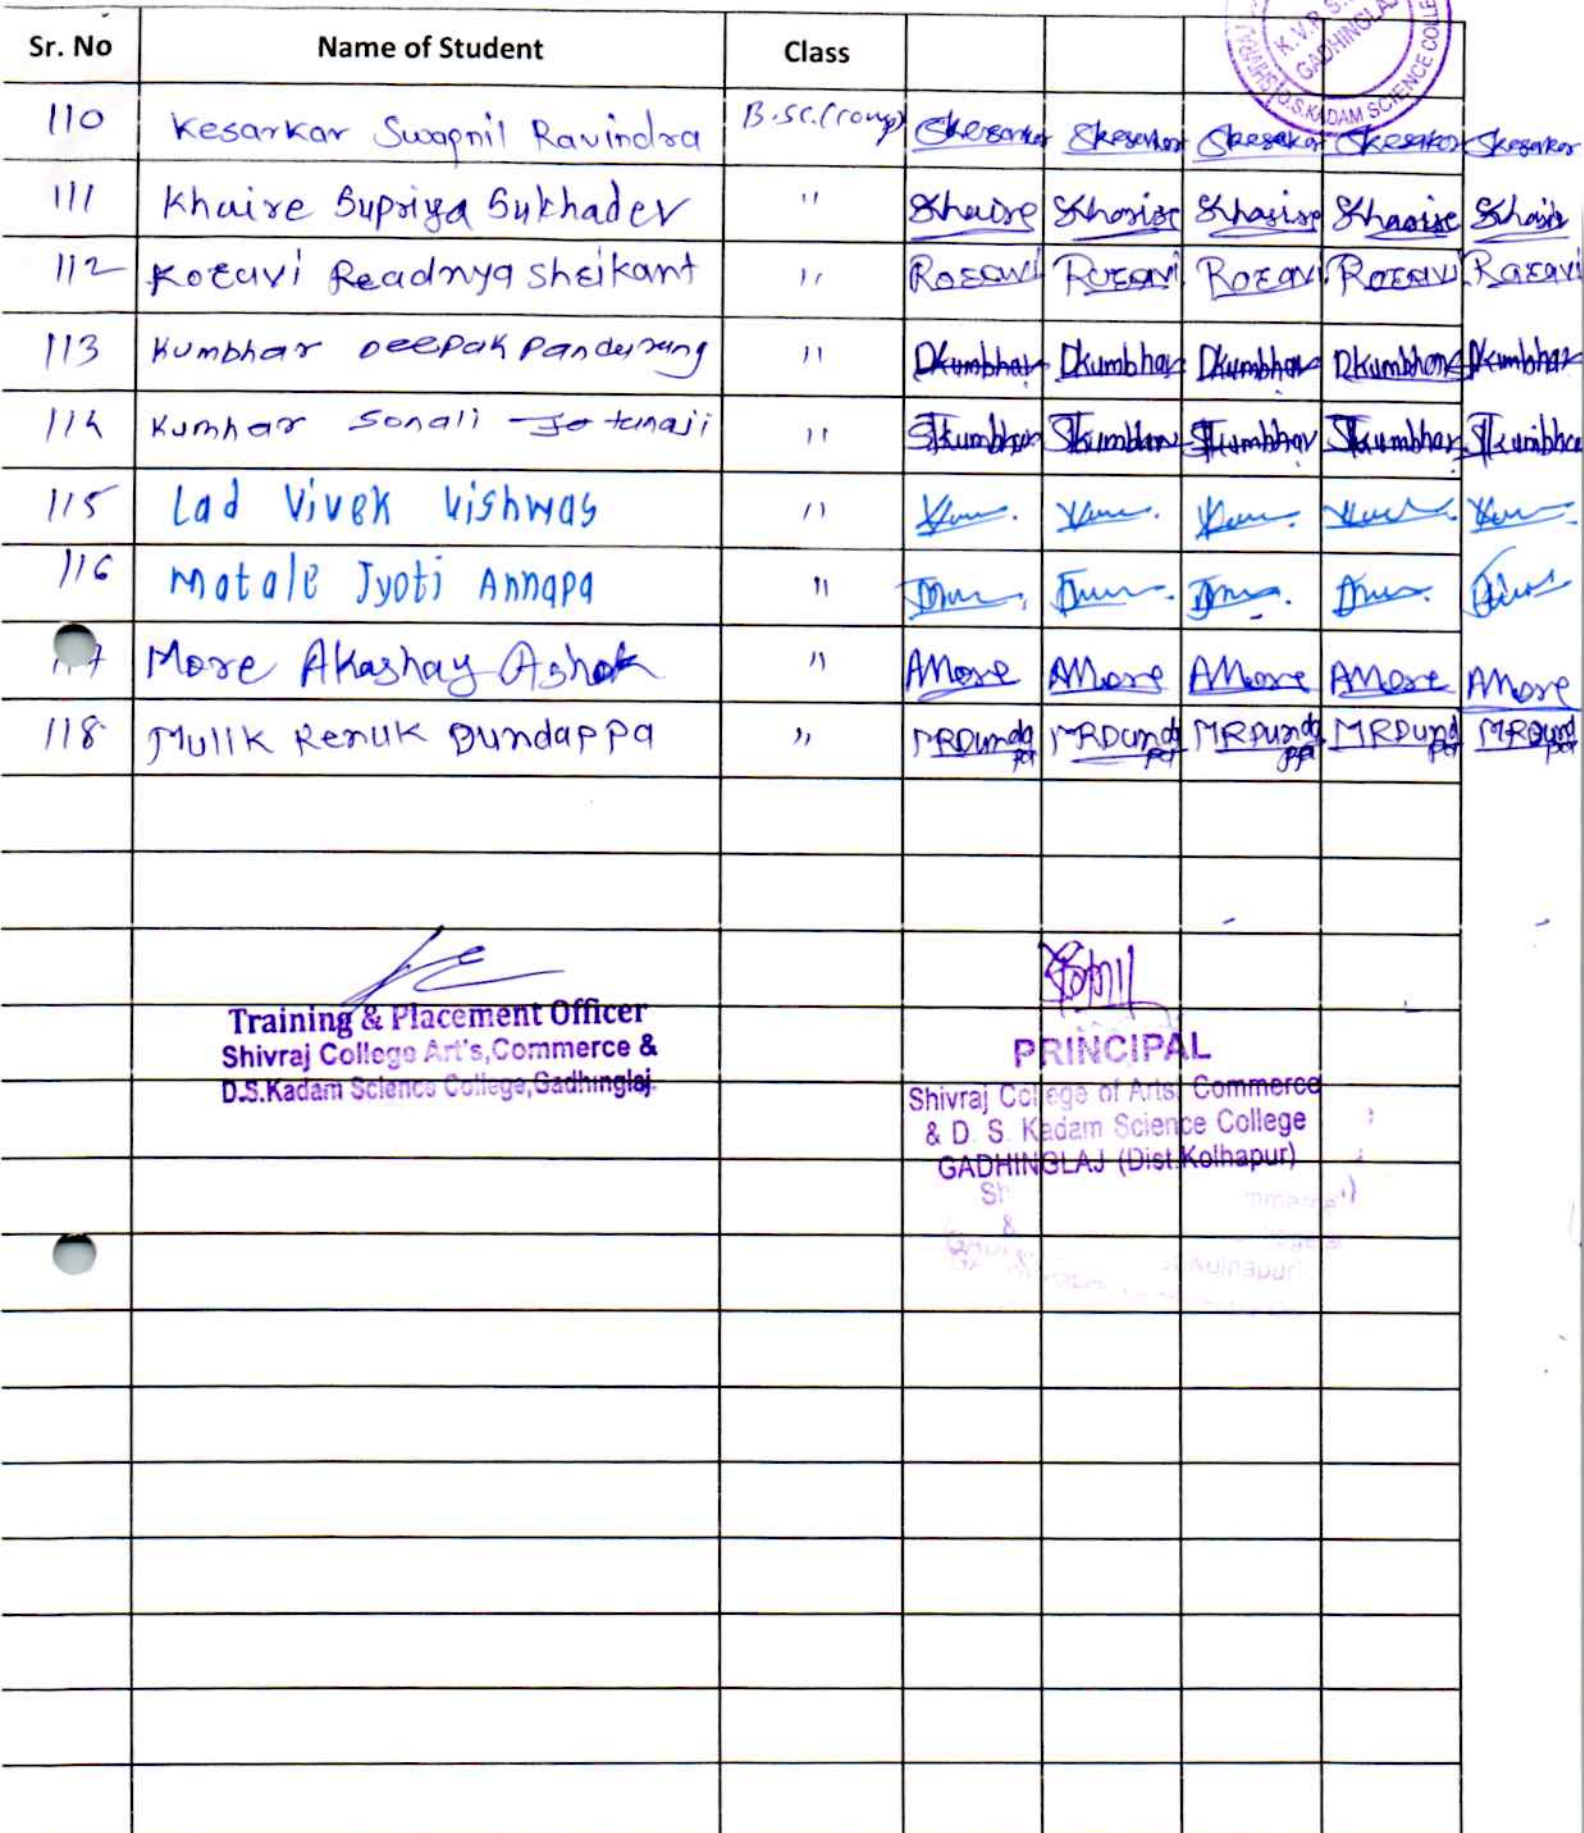 Sr. No Name of Student Class
K.V.P.S.
GADHINGLAJ
D.S.KADAM SCIENCE COLLE
110 Kesarkar Swapnil Ravindra B.sc.(comp) Skesarkar Skesarkar Skesarkar Skesarkar Skesarkar
111 Khaire Supriya Sukhadev " Skhaire Skhaire Skhaire Skhaire Skhaire
112 Koravi Readnya Sheikant " Rosavi Rosavi Rosavi Rosavi Rosavi
113 Kumbhar Deepak Pandurung " Dkumbhar Dkumbhar Dkumbhar Dkumbhar Dkumbhar
114 Kumhar Sonali Jotunaji " Skumbhar Skumbhar Skumbhar Skumbhar Skumbhar
115 Lad Vivek Vishwas "
116 Matale Jyoti Annapa "
117 More Akashay Ashok " AMore AMore AMore AMore AMore
118 Mulik Renuk Dundappa " MRDundappa MRDundappa MRDundappa MRDundappa MRDundappa
Training & Placement Officer
Shivraj College Art's,Commerce &
D.S.Kadam Science College,Gadhinglaj.
PRINCIPAL
Shivraj College of Arts, Commerce
& D. S. Kadam Science College
GADHINGLAJ (Dist.Kolhapur)